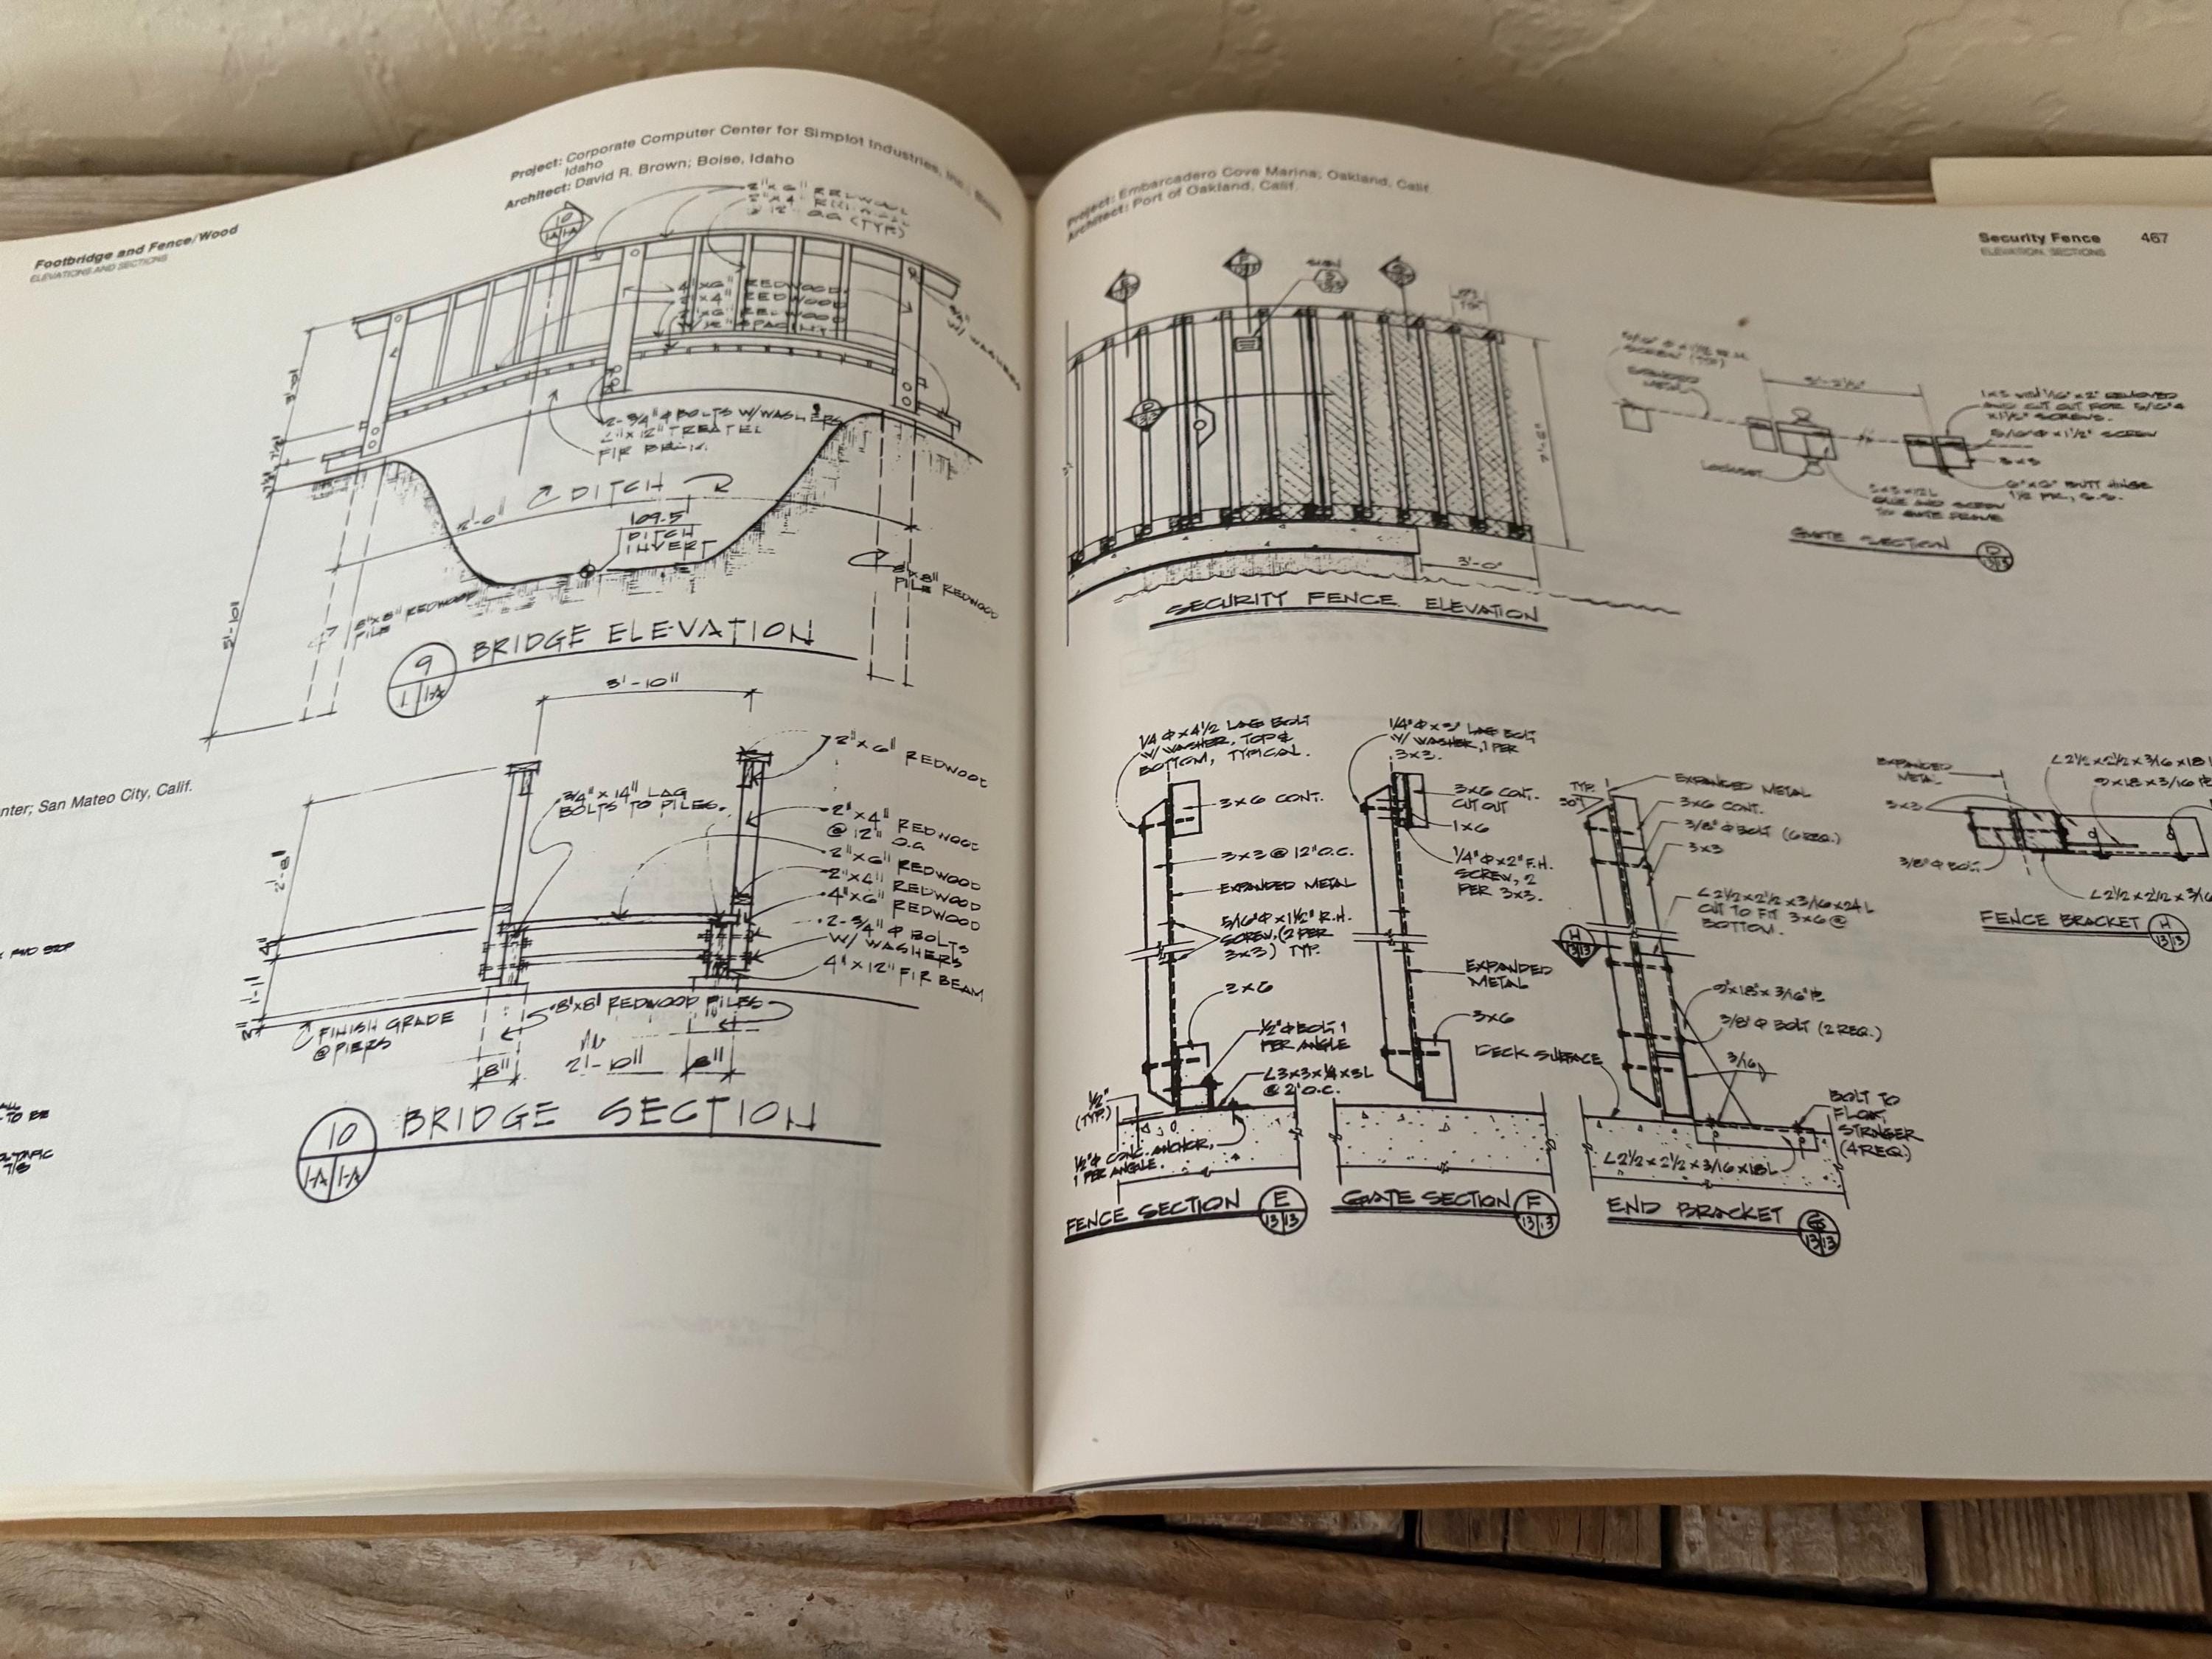 Footbridge and Fence/Wood
ELEVATIONS AND SECTIONS
Project: Corporate Computer Center for Simplot Industries, Inc.;
Idaho
Architect: David R. Brown; Boise, Idaho
2"x6" REDWOOD
2"x4"
@ 12" O.C. (TYP.)
4"x6" REDWOOD
2"x4" REDWOOD
2"x6" REDWOOD
W/ WASHERS
2-3/4" Φ BOLTS W/WASHERS
FIR
DITCH
109.5
DITCH
INVERT
8"x8" REDWOOD
PILE
8"x8" REDWOOD
PILE
9
1 1-A
BRIDGE ELEVATION
3'-10"
2"x6" REDWOOD
3/4" x 14" LAG
BOLTS TO PILES.
2"x4" REDWOOD
@ 12" O.C.
2"x6" REDWOOD
2"x4" REDWOOD
4"x6" REDWOOD
2-3/4" Φ BOLTS
W/ WASHERS
4"x12" FIR BEAM
2'-8"
4"
1'-1"
3"
FINISH GRADE
@ PIERS
8"x8" REDWOOD PILES
8"
2'-10"
8"
10
1-A 1-A
BRIDGE SECTION
nter; San Mateo City, Calif.
TO BE
7/8
Project: Embarcadero Cove Marina; Oakland, Calif.
Architect: Port of Oakland, Calif.
Security Fence 467
ELEVATION, SECTIONS
SIGN
3'-0"
SECURITY FENCE ELEVATION
EXPANDED
METAL
LOCKSET
5/16" Φ x 1 1/2" SCREW
3x3
6"x6" BUTT HINGE
1 1/2 PR., S.S.
GATE SECTION D
13
1/4 Φ x 4 1/2 LAG BOLT
W/ WASHER, TOP &
BOTTOM, TYPICAL.
3x6 CONT.
3x3 @ 12" O.C.
EXPANDED METAL
5/16" Φ x 1 1/2" R.H.
SCREW, (2 PER
3x3) TYP.
2x6
1/2" Φ BOLT 1
PER ANGLE
L3x3x1/4x3L
@ 2' O.C.
1/2"
(TYP.)
1/2" Φ CONC. ANCHOR,
1 PER ANGLE.
FENCE SECTION E
13 13
1/4" Φ x 3" LAG BOLT
W/ WASHER, 1 PER
3x3.
3x6 CONT.
CUT OUT
1x6
1/4" Φ x 2" F.H.
SCREW, 2
PER 3x3.
EXPANDED
METAL
3x6
GATE SECTION F
13 13
TYP.
30°
EXPANDED METAL
3x6 CONT.
3/8" Φ BOLT (6 REQ.)
3x3
L 2 1/2 x 2 1/2 x 3/16 x 24 L
CUT TO FIT 3x6 @
BOTTOM.
H
13 13
9"x18"x3/16" PL
3/8" Φ BOLT (2 REQ.)
DECK SURFACE
3/16
BOLT TO
FLOAT
STRINGER
(4 REQ.)
L 2 1/2 x 2 1/2 x 3/16 x 18 L
END BRACKET G
13 13
EXPANDED
METAL
L 2 1/2 x 2 1/2 x 3/16 x 18
9x18x3/16 PL
3x3
3/8" Φ BOLT
L 2 1/2 x 2 1/2 x 3/16
FENCE BRACKET H
13 13